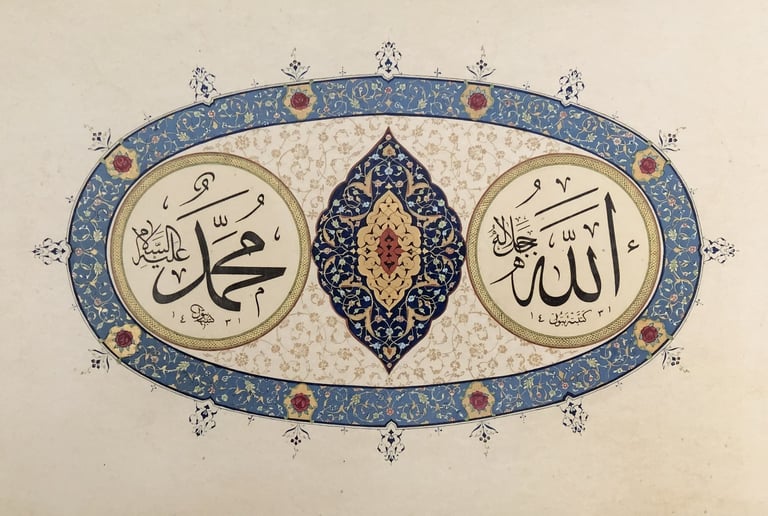 الله
جل جلاله
كتبه
١٤٣١
محمد
عليه السلام
١٤٣١